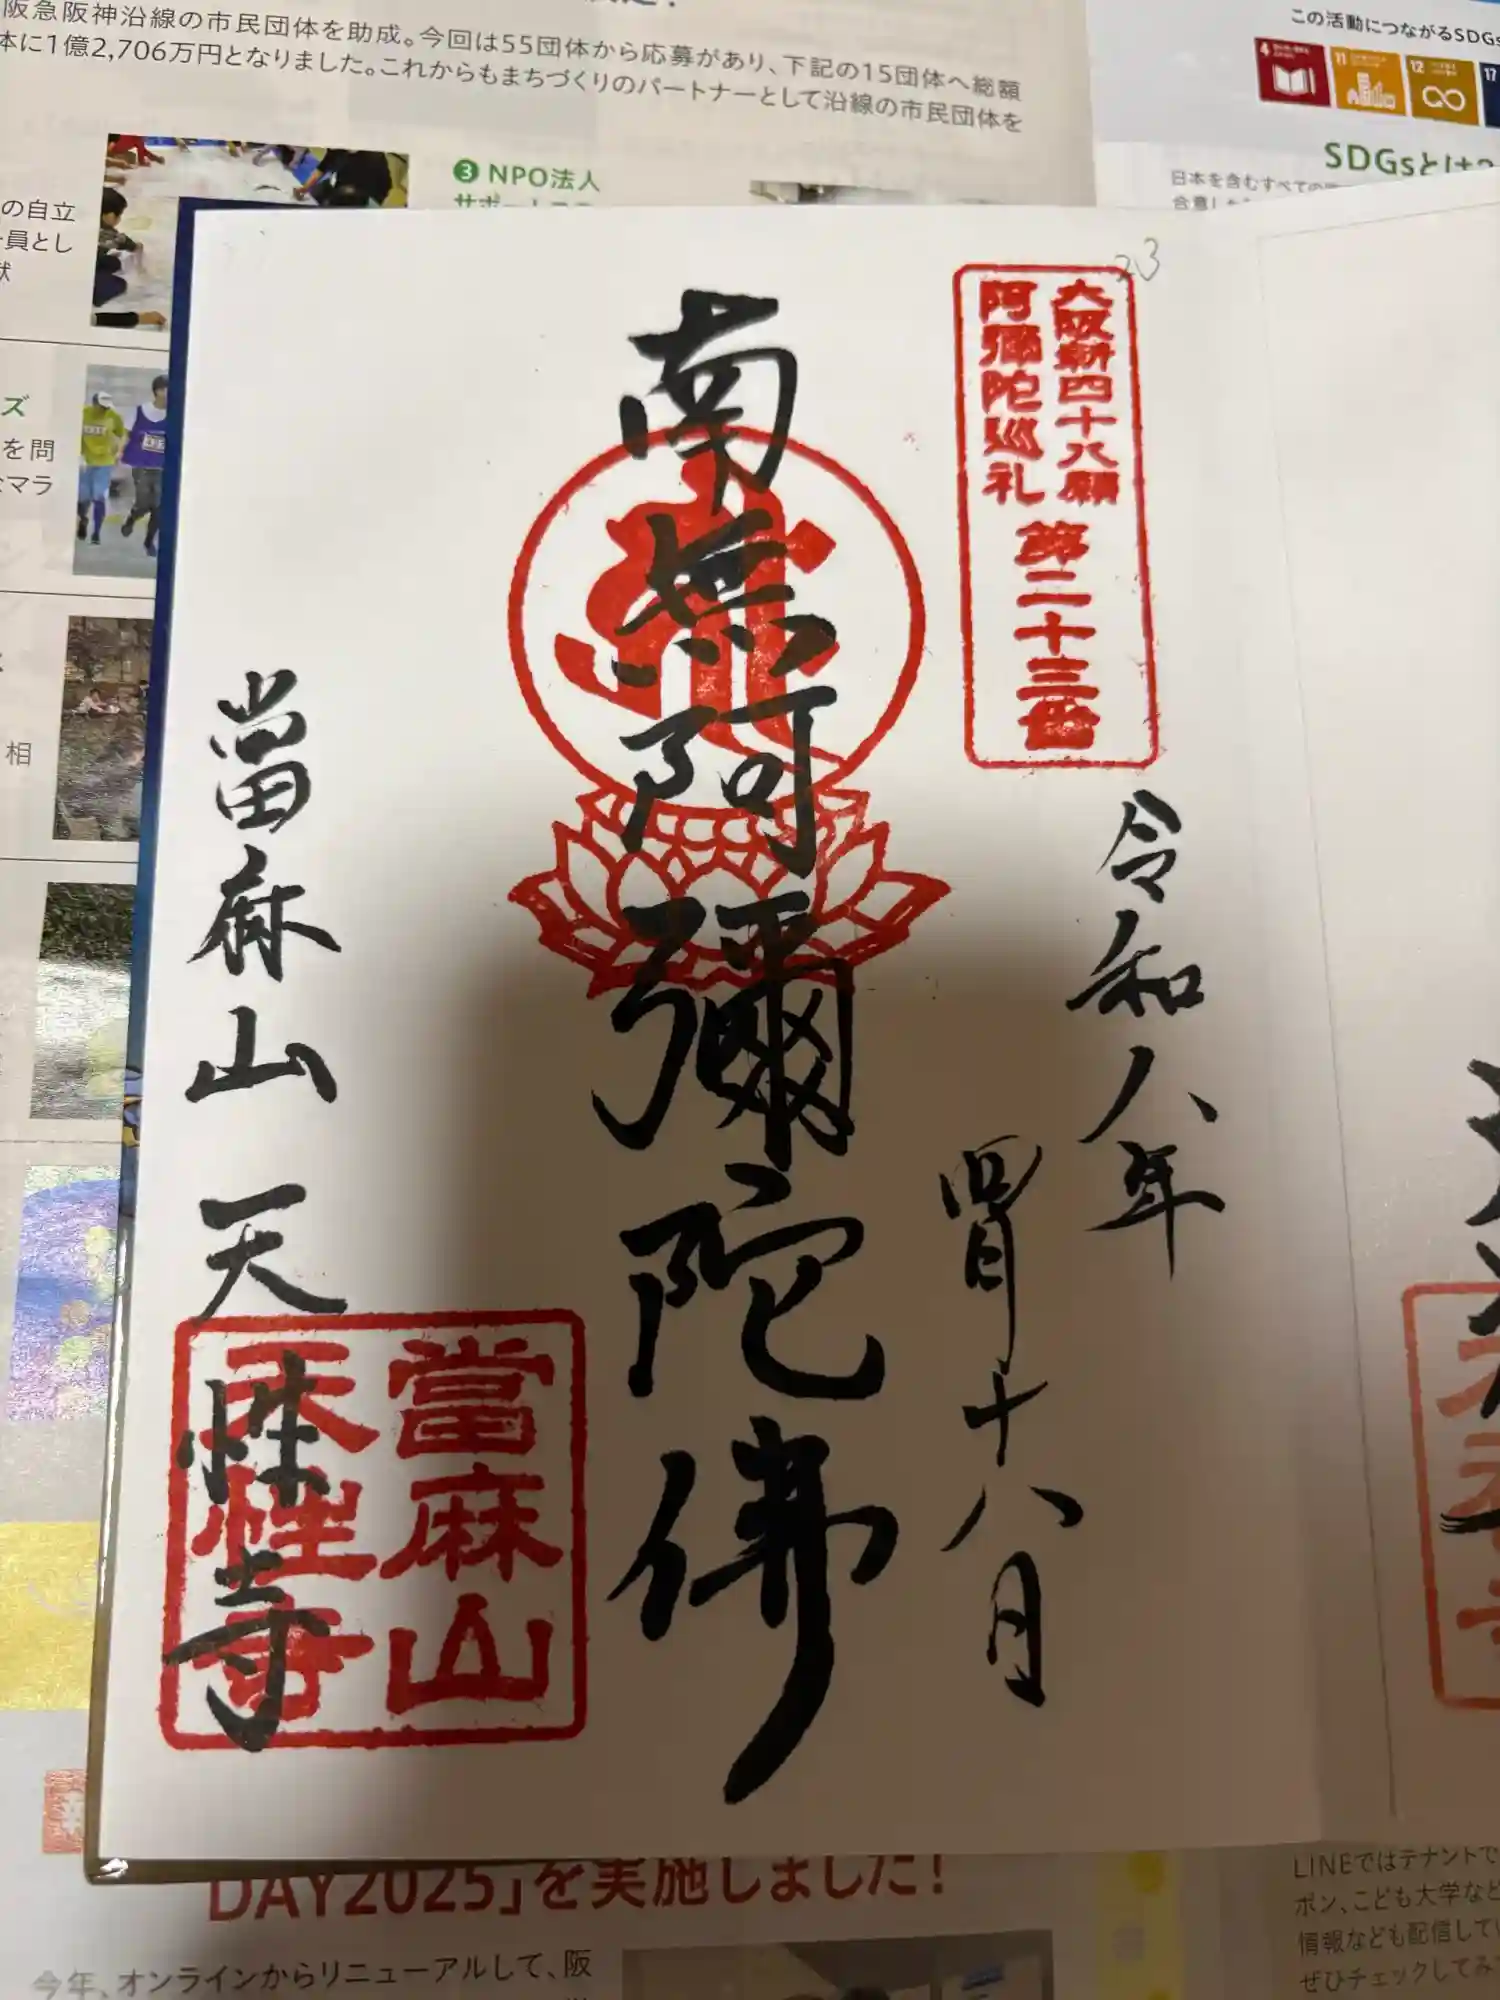 阪急阪神沿線の市民団体を助成。今回は55団体から応募があり、下記の15団体へ総額
体に1億2,706万円となりました。これからもまちづくりのパートナーとして沿線の市民団体を
この活動につながるSDGs
4
11
12
17
SDGsとは?
日本を含むすべての
❸ NPO法人
の自立
員とし
献
ズ
を問
なマラ
相
23
大阪新四十八願
阿彌陀巡礼
第二十三番
令和八年
四月十八日
南無阿彌陀佛
當麻山 天性寺
當麻山
天性寺
DAY2025」を実施しました!
今年、オンラインからリニューアルして、阪
LINEではテナントで
ポン、こども大学など
情報なども配信してい
ぜひチェックしてみ